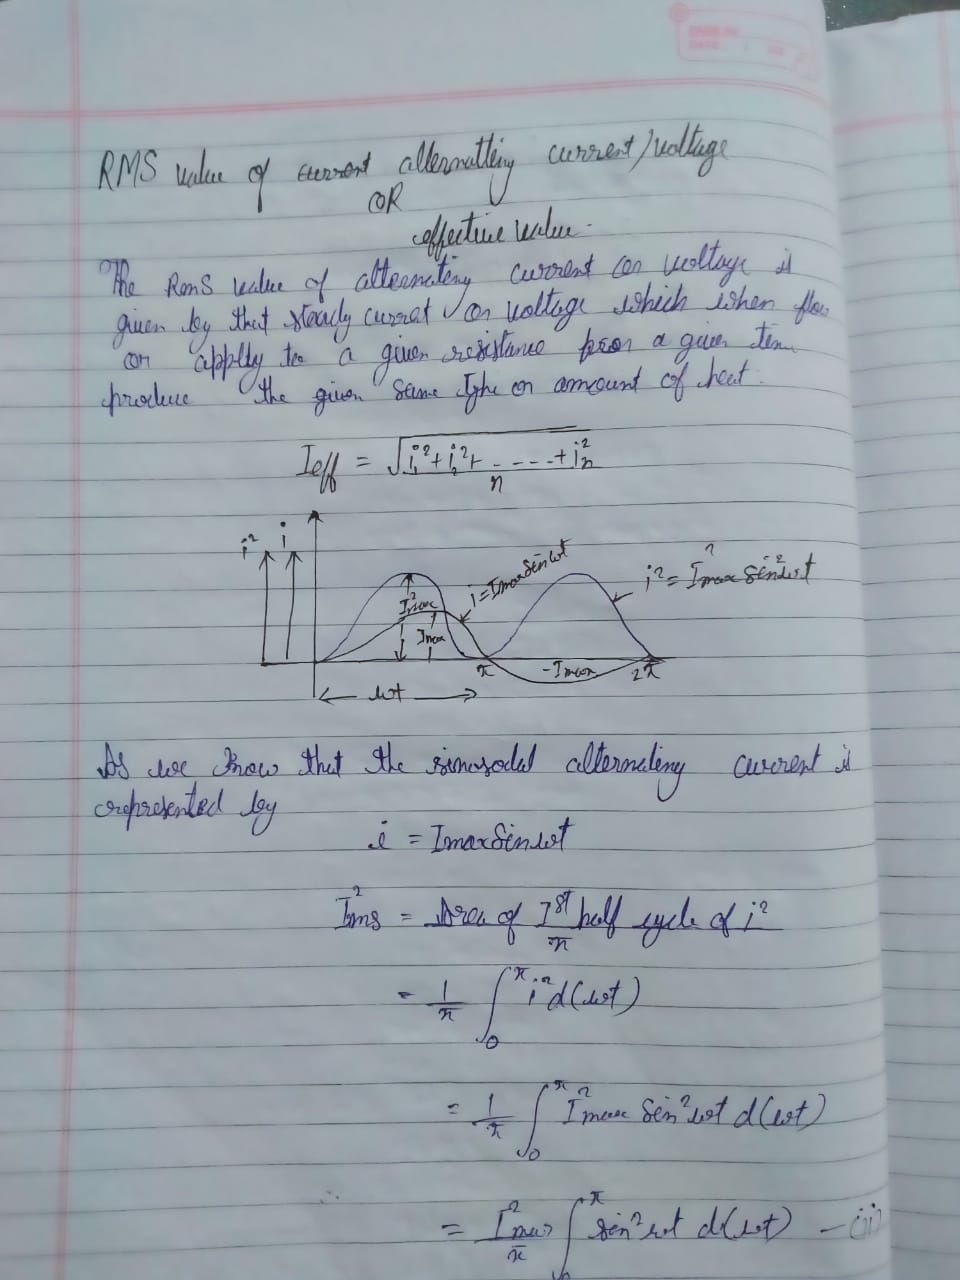 RMS value of current alternatting current/voltage
OR
effective value.
The RMS value of alternating current or voltage is
given by that steady currat or voltage which when flow
or applly to a given resistance for a given tem
produce the given same or amount of heat.
Ieff = √i₁²+i₂²+ - - - - + iₙ²
n
i² i
I²max
Imax
i = Imax Sin ωt
i² = I²max Sin² ωt
π -Imax 2π
ωt
As we know that the sinusodal alternating current is
represented by
i = Imax Sin ωt
I²rms = Area of Ist half cycle of i²
π
= 1/π ∫₀^π i² d(ωt)
= 1/π ∫₀^π I²max Sin² ωt d(ωt)
= I²max/π ∫₀^π sin² ωt d(ωt) - (ii)